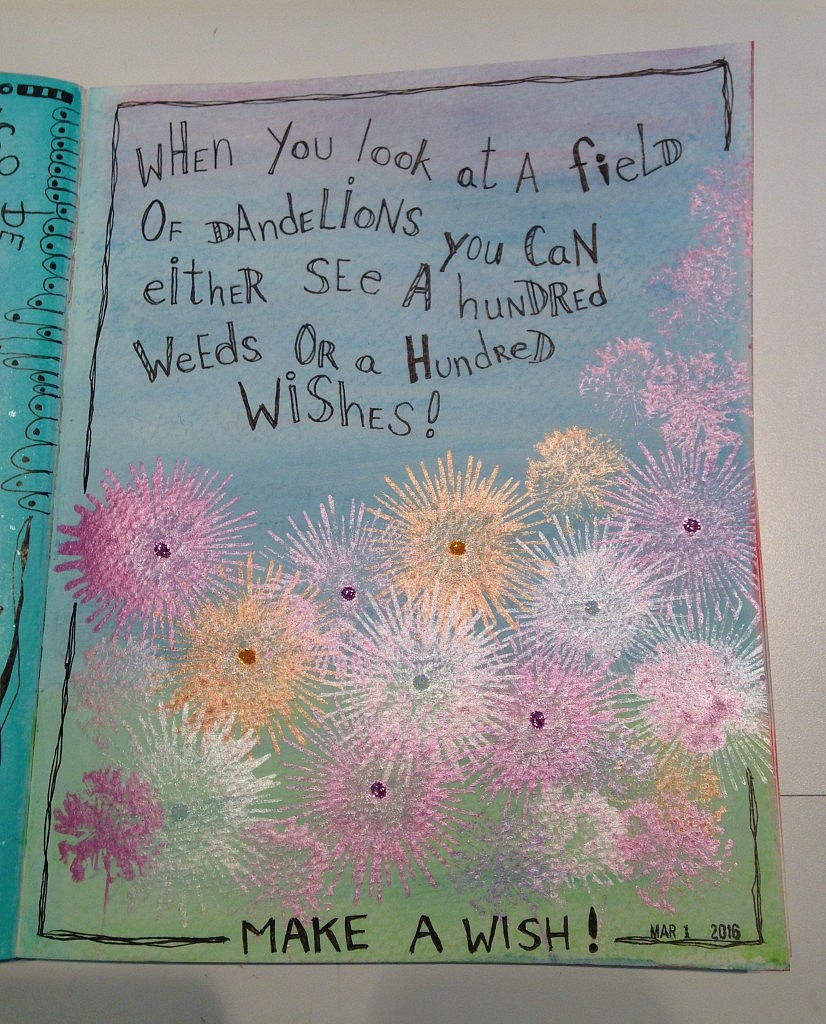 WHEN YOU look at A fiELD
OF DANdELiONS you CaN
eitHER SEe A hUNDRED
WeEdS OR a HundReD
WiShES!
MAKE A WISH!
MAR 1 2016